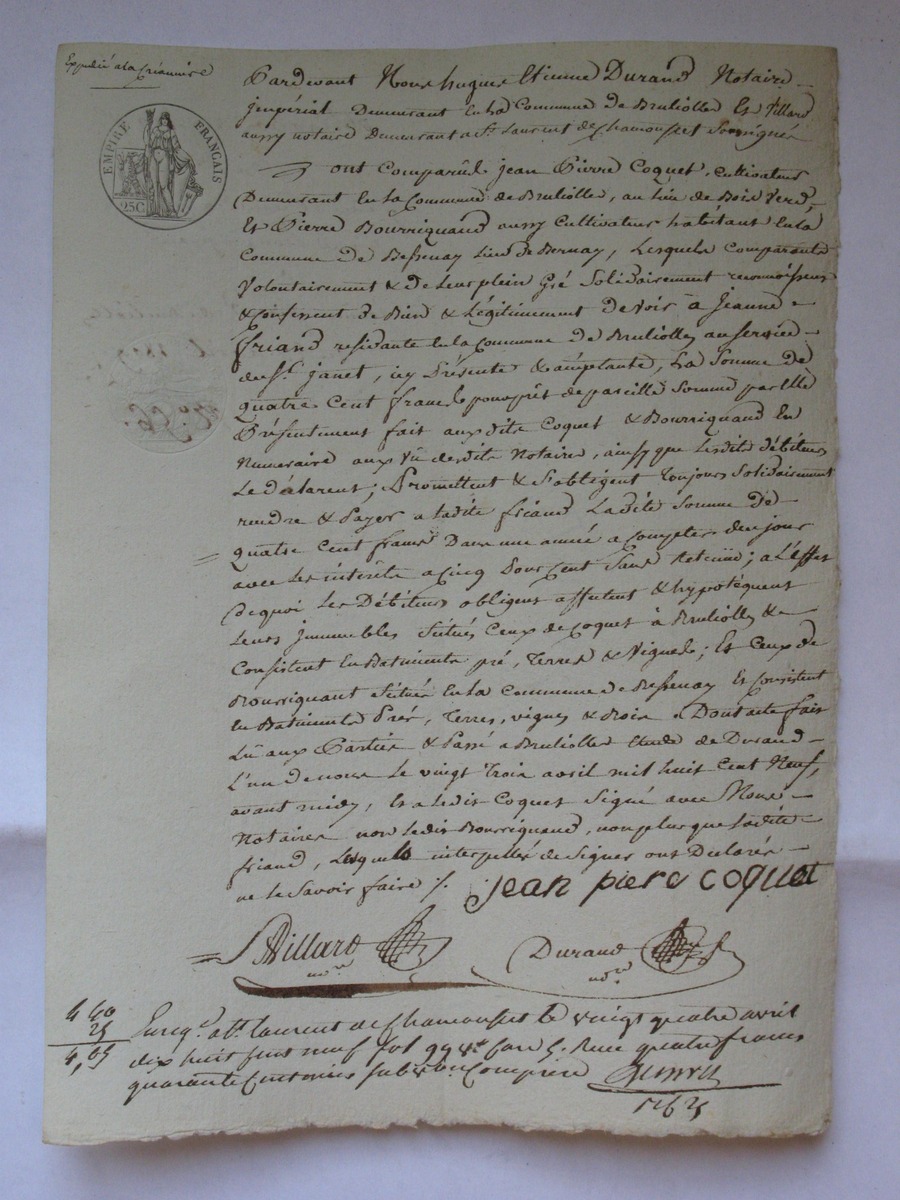 Expedié a la Créanciere
EMPIRE FRANÇAIS
25C
Pardevant Nous hugues Etienne Durand Notaire
jmpérial Demeurant En la Commune de Bruliolle Et Villard
aussy notaire Demeurant a St. Laurent de Chamousset Soussignés
ont Comparûs jean Pierre Coquet, Cultivateur
Demeurant En la Commune de Brulliolle, au lieu de Bois Verd,
Et Pierre Bourriquand aussy Cultivateur habitant En la
Commune de Bessenay Lieu de Bernay, Lesquels Comparants
Volontairement & de Leur plein Gré Solidairement reconnoissent
& Confessent de Bien & Légitimement Devoir à Jeanne
friand residante En la Commune de Brulliolles au service
de Sr. janet, icy Présente & acceptante, La Somme de
Quatre Cent francs pour prêt de pareille Somme par Elle
Présentement fait aux dits Coquet & Bourriquand En
Numeraire aux vû desdits Notaires, ainsy que Lesdits débiteurs
Le déclarent; Promettent & S'obligent Toujours Solidairement
rendre & Payer a ladite friand Ladite Somme de
quatre Cent francs Dans une année a Compter de ce jour
avec Les intérêts a Cinq Pour Cent Sans Retenue; a L'effet
de quoi Les Débiteurs obligent affectent & hypotéquent
Leurs jmmeubles Situés Ceux de Coquet à Brulliolles &
Consistent En Batiments pré, Terres & Vignes; Et Ceux de
Bourriquant Situés En la Commune de Bessenay Et Consistent
En Batiments Prés, Terres, vignes & Bois Dont acte fait
Lû aux Parties & Passé a Brulliolles Etude de Durand
L'un de nous Le vingt Trois avril mil huit Cent Neuf,
avant midy, Et a ledit Coquet Signé avec Nous
Notaires non Ledit Bourriquand, non plus que ladite
friand, Lesquels interpellés de Signer ont Déclarés
ne le Savoir faire ./.
jean piere coquet
Villard
nore
Durand
nore
4 40
25
4,65
Enregé. a St. laurent de Chamousset le vingt quatre avril
dix huit cent neuf fol 99 vo Case 5. Reçu quatre francs
quarante Centimes subvon Comprise